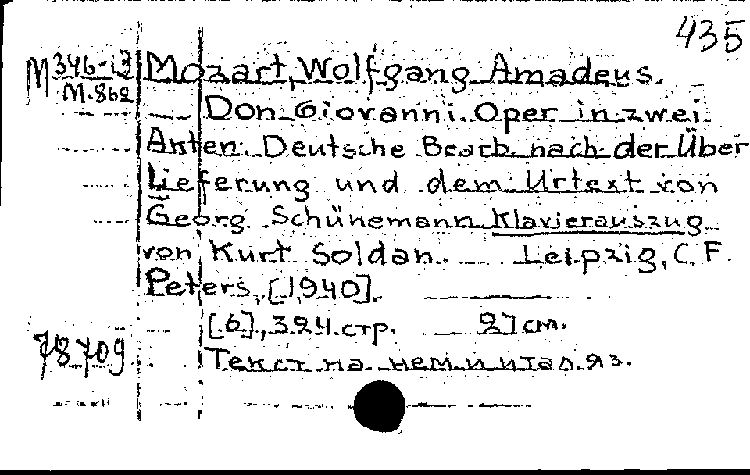 435
М 346-13 Mozart, Wolfgang Amadeus.
М.862
Don Giovanni. Oper in zwei
Akten. Deutsche Bearb. nach der Über
Lieferung und dem Urtext von
Georg Schünemann Klavierauszug
von Kurt Soldan. — Leipzig, C. F.
Peters, [1940].
[6], 324 стр. 27 см.
78709
Текст на нем. и итал. яз.